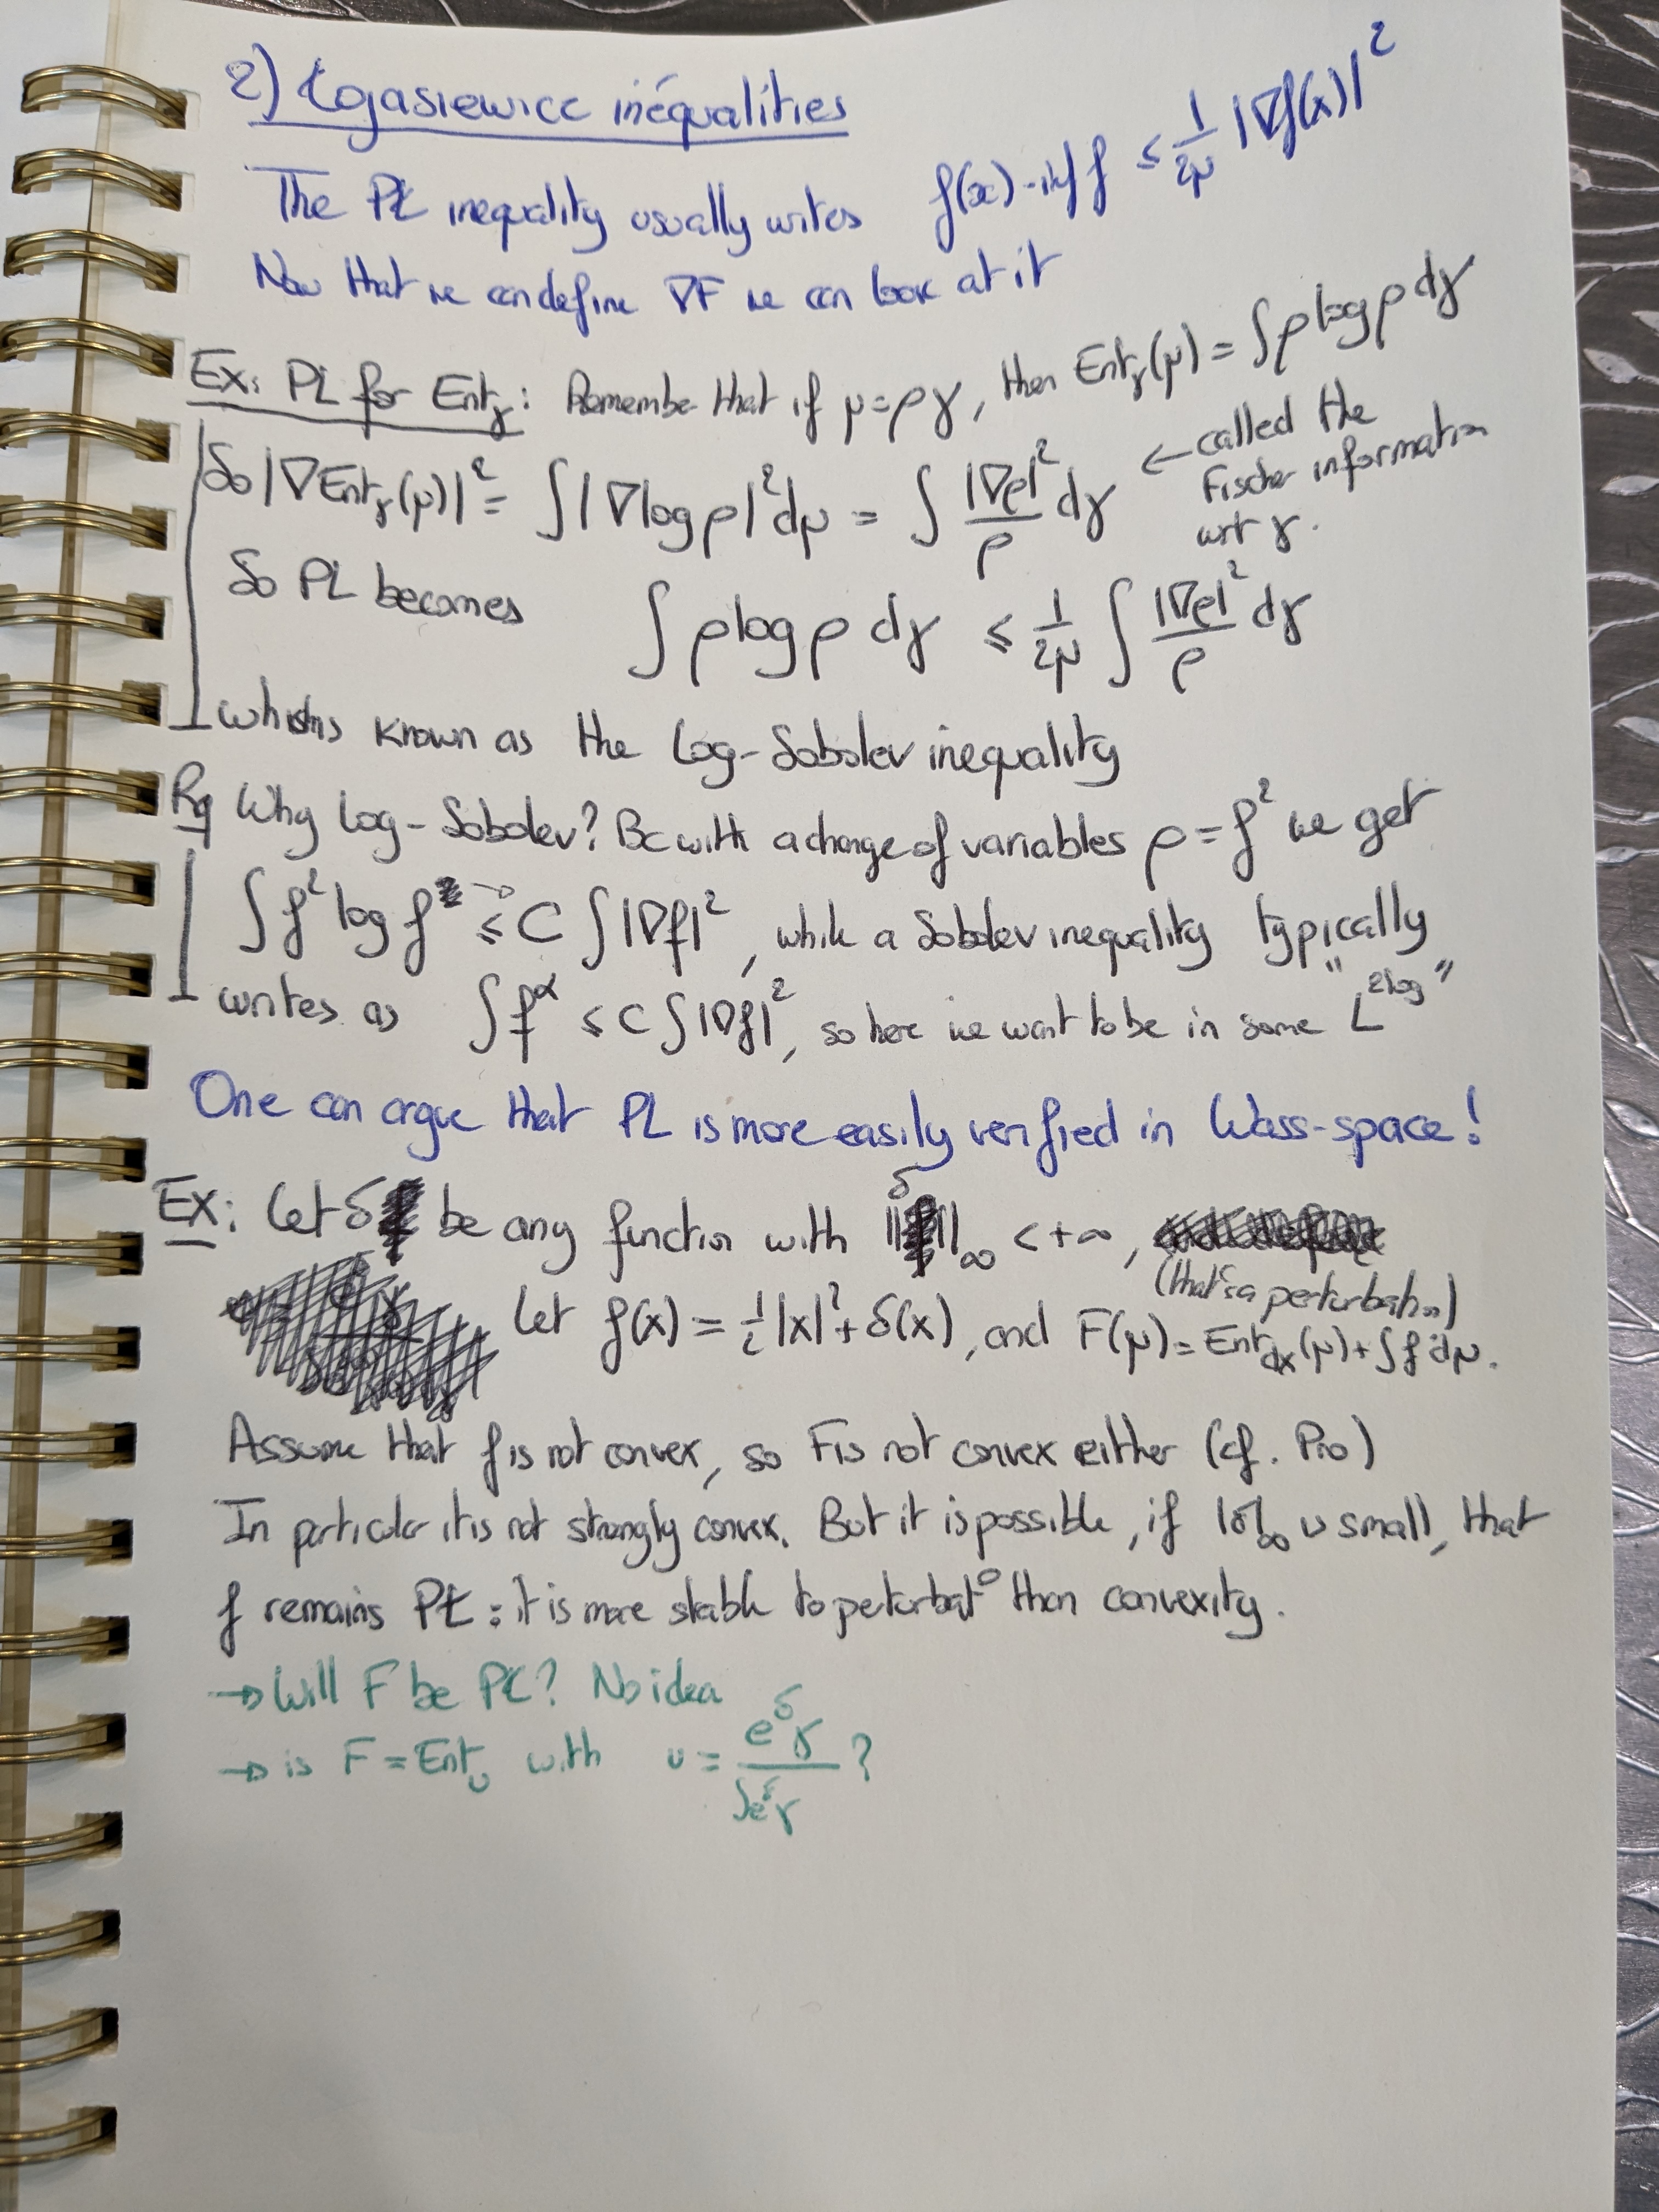 2) Łojasiewicc inéqualities
The PŁ inequality usually writes f(x) - inf f ≤ 1/2μ |∇f(x)|²
Now that we can define ∇F we can look at it
Ex: PL for Entγ: Remember that if μ=ργ, then Entγ(μ) = ∫ρlogρ dγ
So |∇Entγ(μ)|² = ∫|∇logρ|²dμ = ∫ |∇ρ|²/ρ dγ ← called the
Fischer information
wrt γ.
So PL becomes ∫ρlogρ dγ ≤ 1/2μ ∫ |∇ρ|²/ρ dγ
which is known as the Log-Sobolev inequality
Rq Why Log-Sobolev? Bc with a change of variables ρ = f² we get
∫f² log f ≤ C ∫|∇f|², while a Sobolev inequality typically
writes as ∫f^α ≤ C ∫|∇f|², so here we want to be in some "L^{2log}"
One can argue that PL is more easily verified in Wass-space!
Ex: Let δ be any function with ||δ||∞ < +∞,
(that's a perturbat°n)
Let f(x) = ½|x|² + δ(x), and F(μ) = Ent_dx(μ) + ∫f dμ.
Assume that f is not convex, so F is not convex either (cf. P10)
In particular it is not strongly convex. But it is possible, if |δ|∞ is small, that
f remains PŁ: it is more stable to perturbat° than convexity.
→ Will F be PŁ? No idea
→ is F = Entυ with υ = e^δ γ / ∫e^δ γ ?